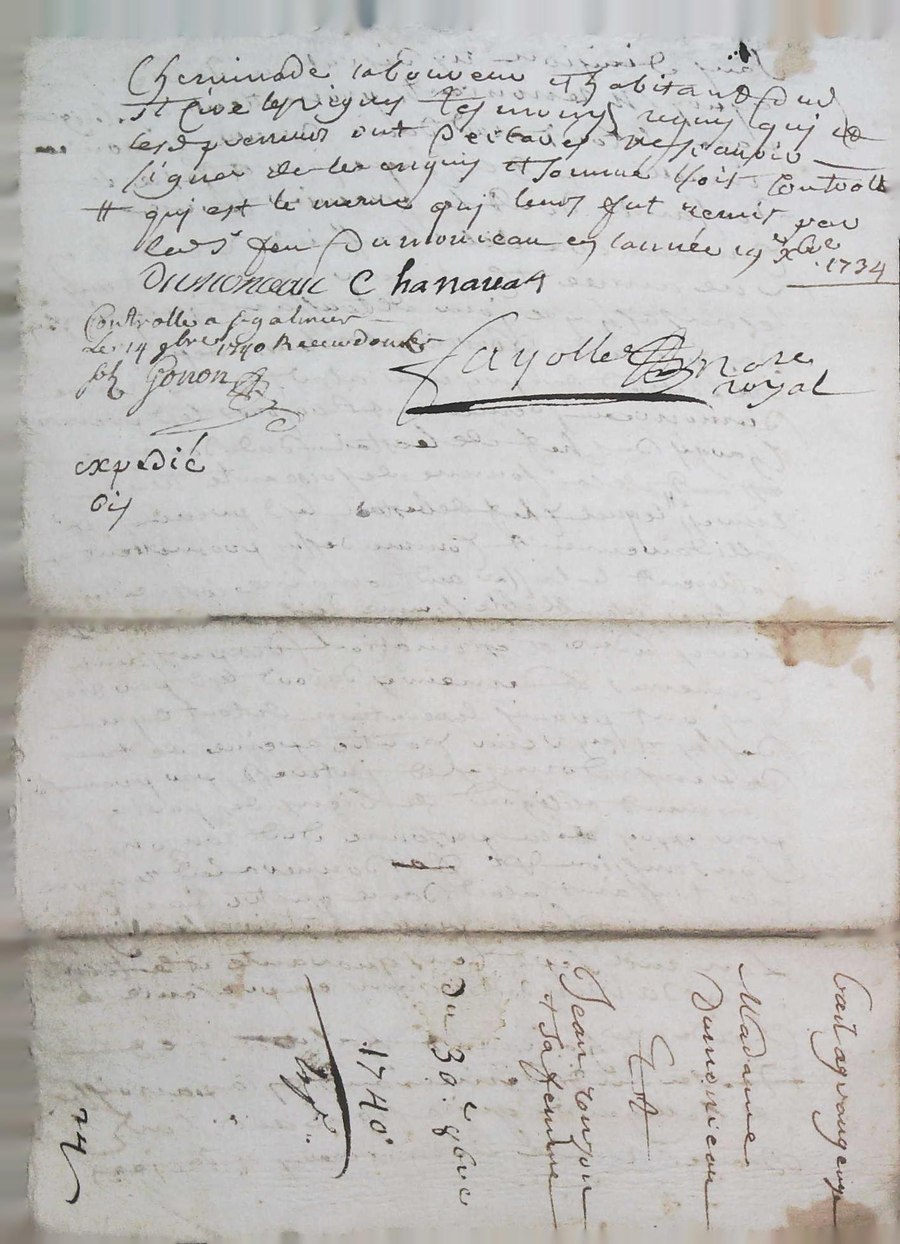 Cheminade laboureur et habitant dud
St Cire les vignes tesmoins requis qui et
les preneurs ont declarés ne scauoir
signer de ce enquis et sommé soit Controllé
# qui est le meme qui leur fut remis par
led sr feu Dumonceau en lannée 19e xbre
1734
Dumonceau Chanauat
Controlle a st galmier
Le 14 9bre 1740 Receu douze s
Gonon
Fayolle nore
royal
expedié
Bail a grangeage
Madame
Dumonceau
Et
Jean
et sa femme
du 30e 8bre
1740
24